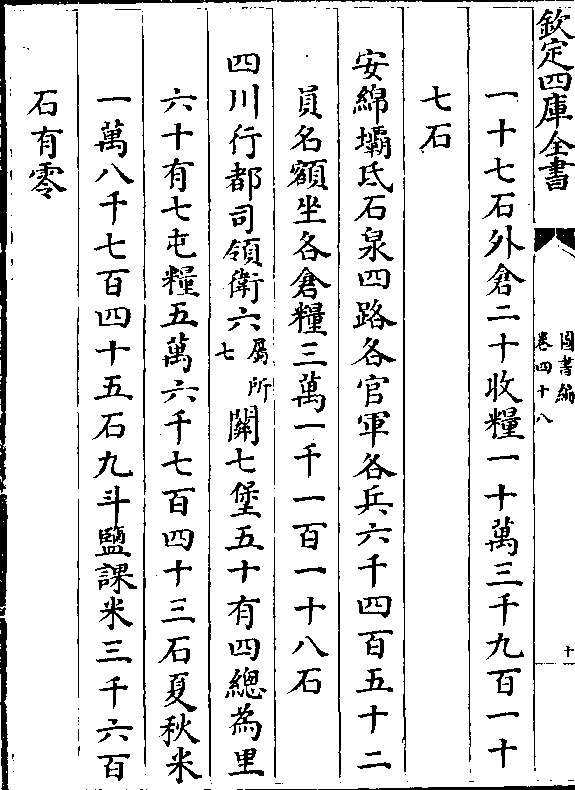 欽定四庫全書
圖書編
卷四十八
十
一十七石外倉二十收糧一十萬三千九百一十
七石
安綿壩氐石泉四路各官軍各兵六千四百五十二
員名額坐各倉糧三萬一千一百一十八石
四川行都司領衛六屬所七關七堡五十有四總為里
六十有七屯糧五萬六千七百四十三石夏秋米
一萬八千七百四十五石九斗鹽課米三千六百
石有零